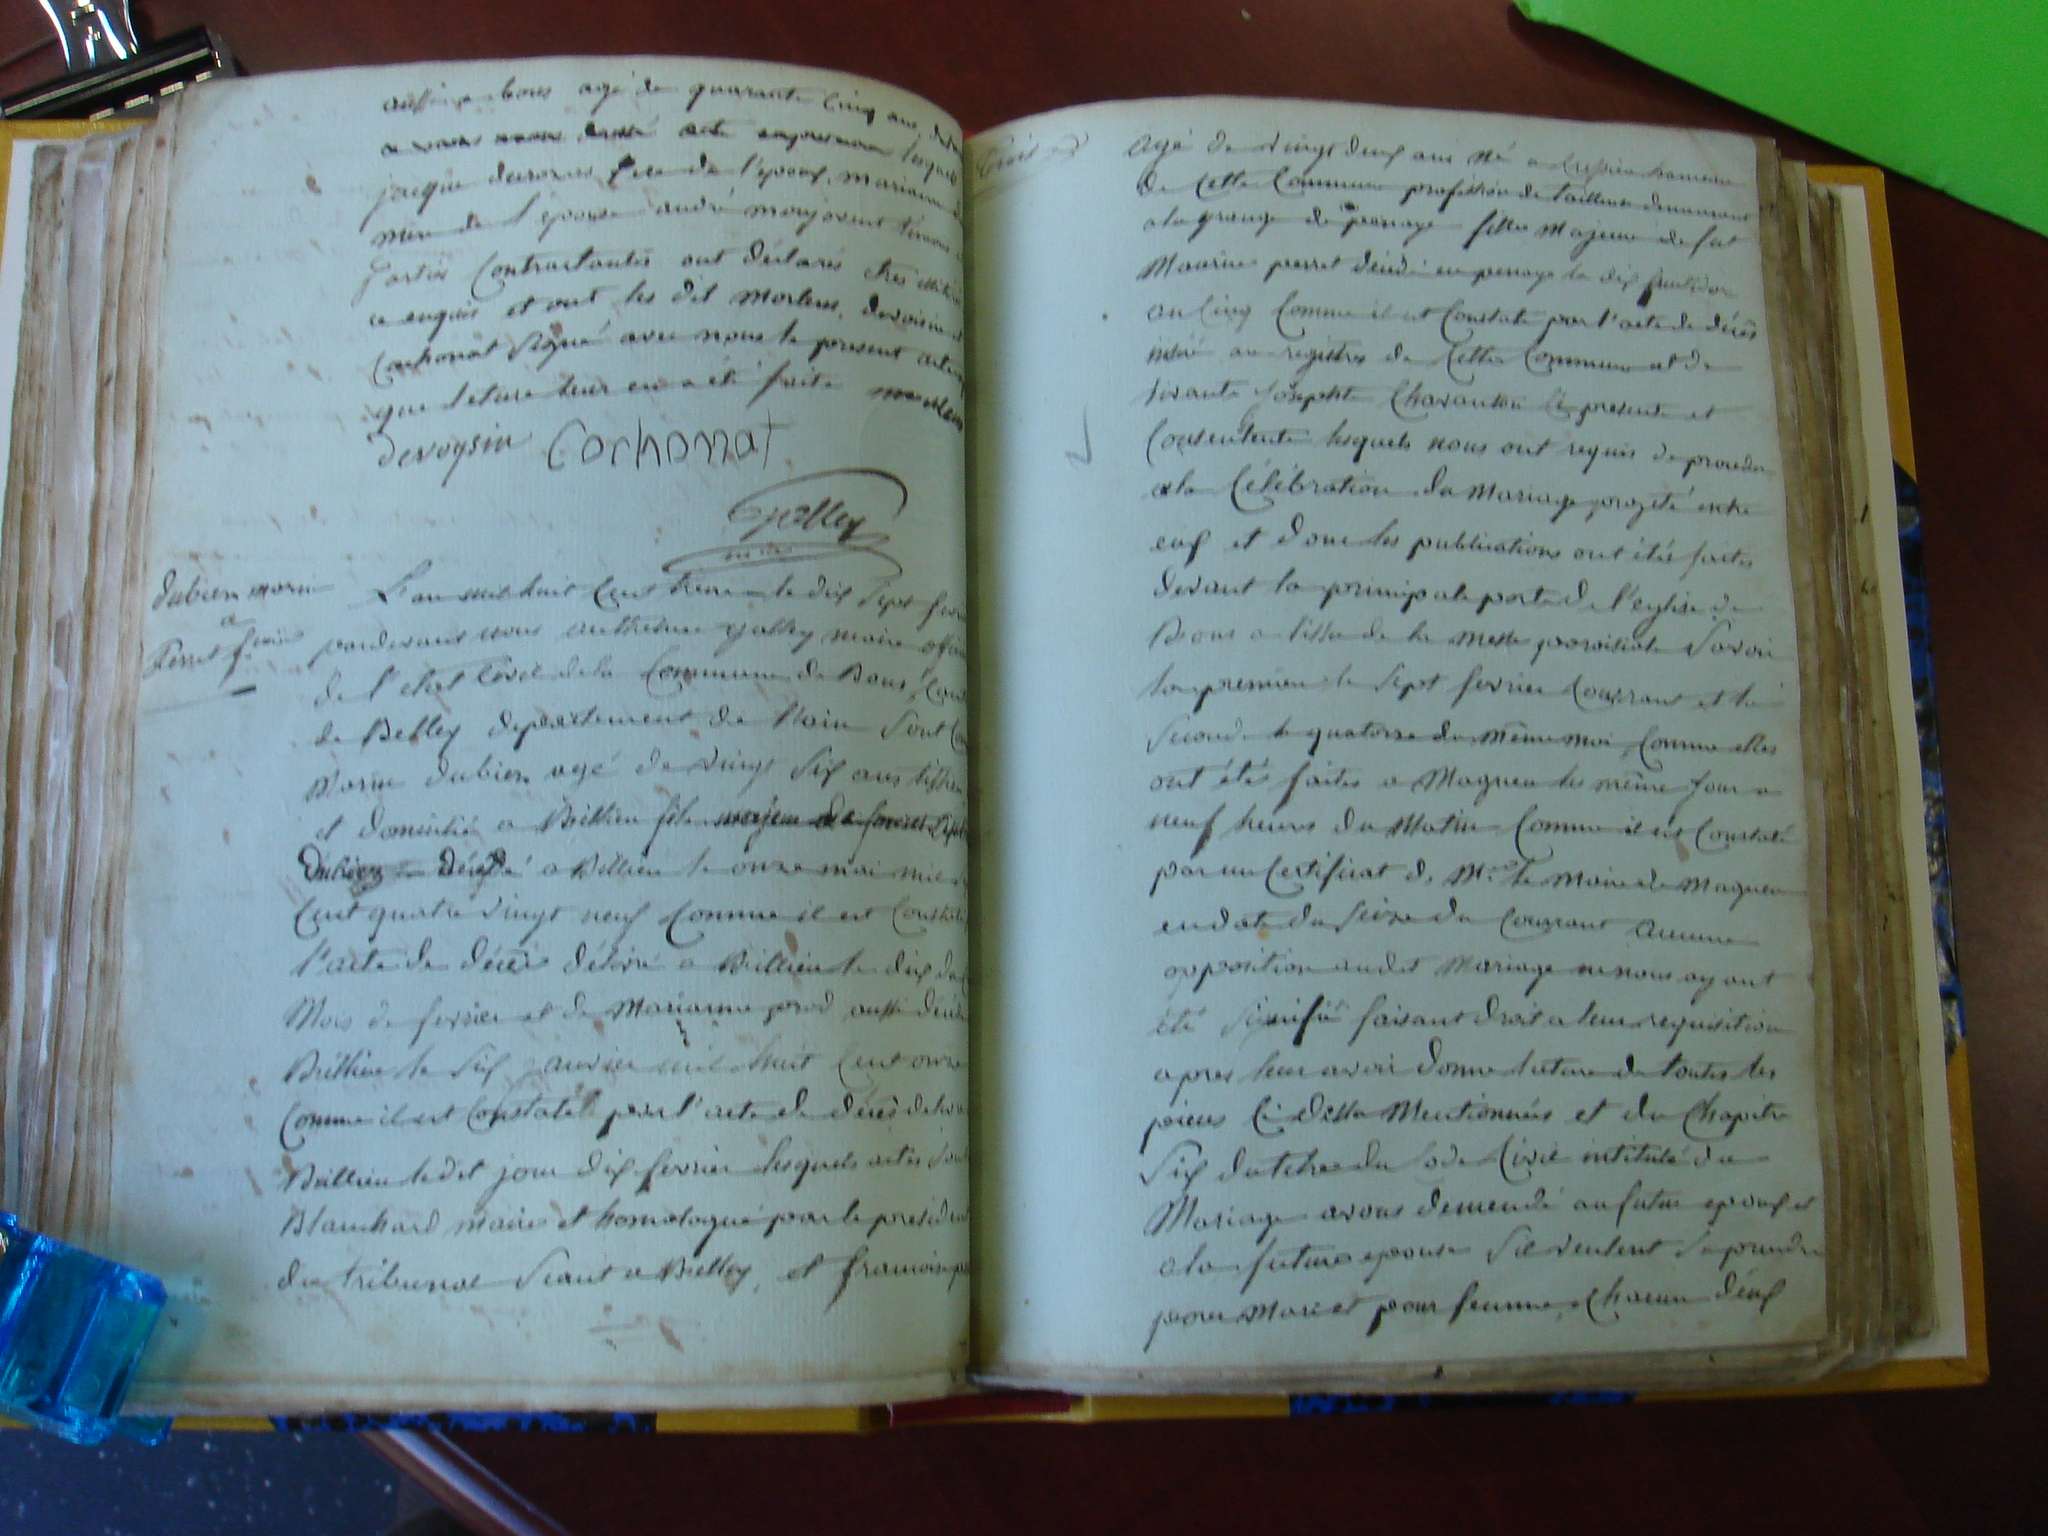 aussi a bons agé de quarante cinq ans,
acte lesquels
jacque pere de l'epoux, mariann
mere de l'epouse andré monjovent témoins
partis Contractantes ont déclarés etres
ce enquis et ont les dit morleus, devoisin et
Cochonat Signé avec nous le present acte
que lecture leur en a eté faite morleus
devoysin Cochonat
Gyalley
maire
dubien marin
a
Perret
L'an mil huit Cent treize le dix Sept fevrie
pardevant nous anthelme Gyalley maire offici
de l'etat Civil de la Commune de Bons,
de Belley departement de l'Lain Sont
Marin dubien agé de vingt Six ans
et domicilié a Brillieu fils majeur de
dubien décédé a Billieu le onze mai mil
Cent quatre vingt neuf Comme il est Constaté
l'acte de décès délivré a Billieu le dix du
Mois de fevrier et de Marianne prod aussi décéd
Billieu le Six janvier mil huit Cent onze
Comme il est Constaté par l'acte de décès deliv
Billieu le dit jour dix fevrier lesquels actes
Blanchard maire et homologué par le président
du tribunal Séant a Belley, et francoise
agé de vingt deux ans né a Crussieu hameau
de Cette Commune profession de tailleuse demeurant
a la grange de penaye fille Majeure de fut
Maurice perret décédé en penaye le dix fructidor
an Cinq Comme il est Constaté par l'acte de décès
inséré au registres de Cette Commune et de
vivante Josephte Ci presente et
Consentente lesquels nous ont requis de proceder
a la Célébration du Mariage projeté entre
eux et donc les publications ont étés faites
devant la principale porte de l'eglise de
Bons a l'issu de la Messe paroissiale Savoir
la premiere le Sept fevrier Courrant et la
Seconde le quatorze du même moi, Comme elles
ont étés faites a Magneu les même jour a
neuf heures du Matin Comme il est Constaté
par un Certificat de Mr. le Maire de Magneu
en date du Seize du Courrant aucune
opposition audit Mariage ne nous ayant
été Signifié faisant droit a leur requisition
apres leur avoir donné lecture de toutes les
pieces Ci dessu Mentionnés et du Chapitre
Six du titre du Code Civil intitulé du
Mariage avons demendé au futur epoux et
a la future epouse S'il veulent Se prendre
pour Mari et pour femme, Chacun d'eux